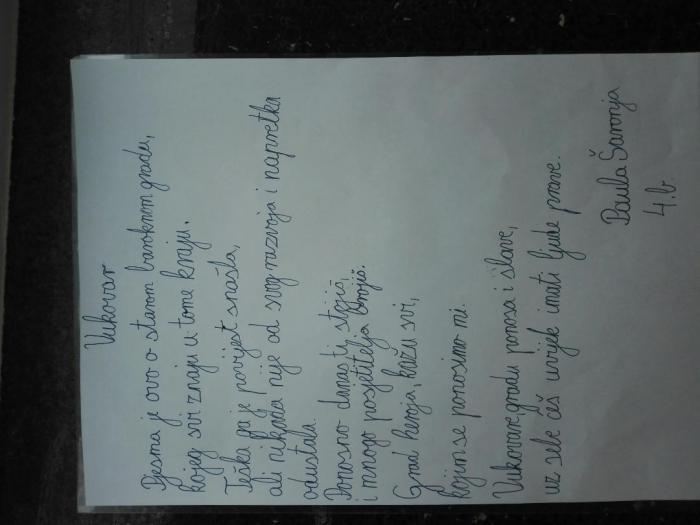 Vukovar
Pjesma je ovo o starom baroknom gradu,
kojeg svi znaju u tome kraju.
Teška ga je povijest snašla,
ali nikada nije od svog razvoja i napretka
odustala.
Ponosno danas ti stojiš,
i mnogo posjetitelja brojiš.
Grad heroja, kažu svi,
kojim se ponosimo mi.
Vukovare gradu ponosa i slave,
uz sebe ćeš uvijek imati ljude prave.
Paula Šaronja
4.b